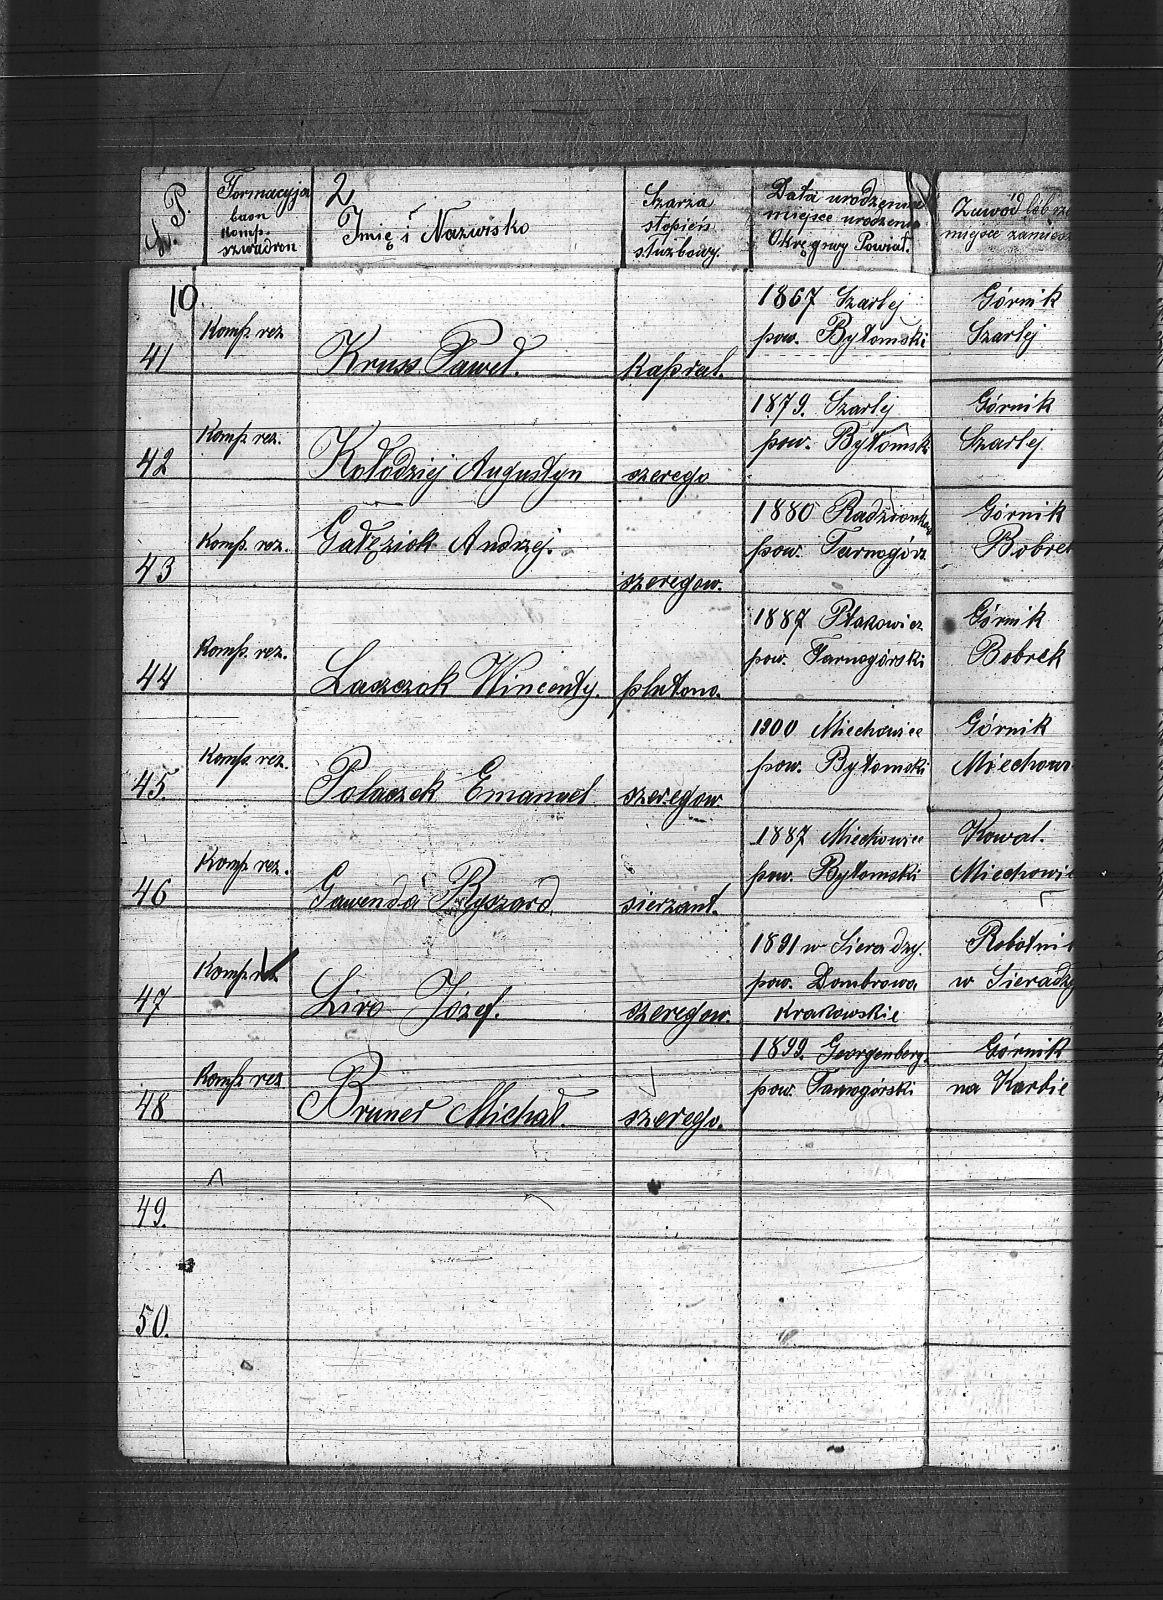 L. P.
Formacyja
baon
komp.
szwadron
2
Imię i Nazwisko
Szarża
stopień
służbowy.
Data urodzenia
miejsce urodzenia
Okręgowy Powiat.
Zawód
miejsce zamiesz
10.
41
Komp. rez
Kruss Paweł.
kapral.
1867 Szarlej
pow. Bytomski
Górnik
Szarlej
42
Komp. rez.
Kołodziej Augustyn
szerego
1879. Szarlej
pow. Bytomsk
Górnik
Szarlej
43
Komp. rez.
Gałęziok Andrzej.
szeregow.
1880 Radzionków
pow. Tarnogórz
Górnik
Bobrek
44
Komp. rez.
Laszczok Wincenty.
plutono.
1887 Ptakowicz
pow. Tarnogórski
Górnik
Bobrek
45.
Komp. rez.
Polaczek Emanuel
szeregow
1900 Miechowice
pow. Bytomski
Górnik
Miechowi
46
Komp. rez.
Gawenda Ryszard
sierżant.
1887 Miechowice
pow. Bytomski
Kowal.
Miechowi
47
Komp. rez
Liro Józef.
szeregow.
1891 w Sieradzy.
pow. Dombrowa
Krakowskie
Robotni
w Sieradzy
48
Komp. rez
Bruner Michał.
szerego.
1899. Georgenberg.
pow. Tarnogórski
Górnik
na Karbie
49.
50.